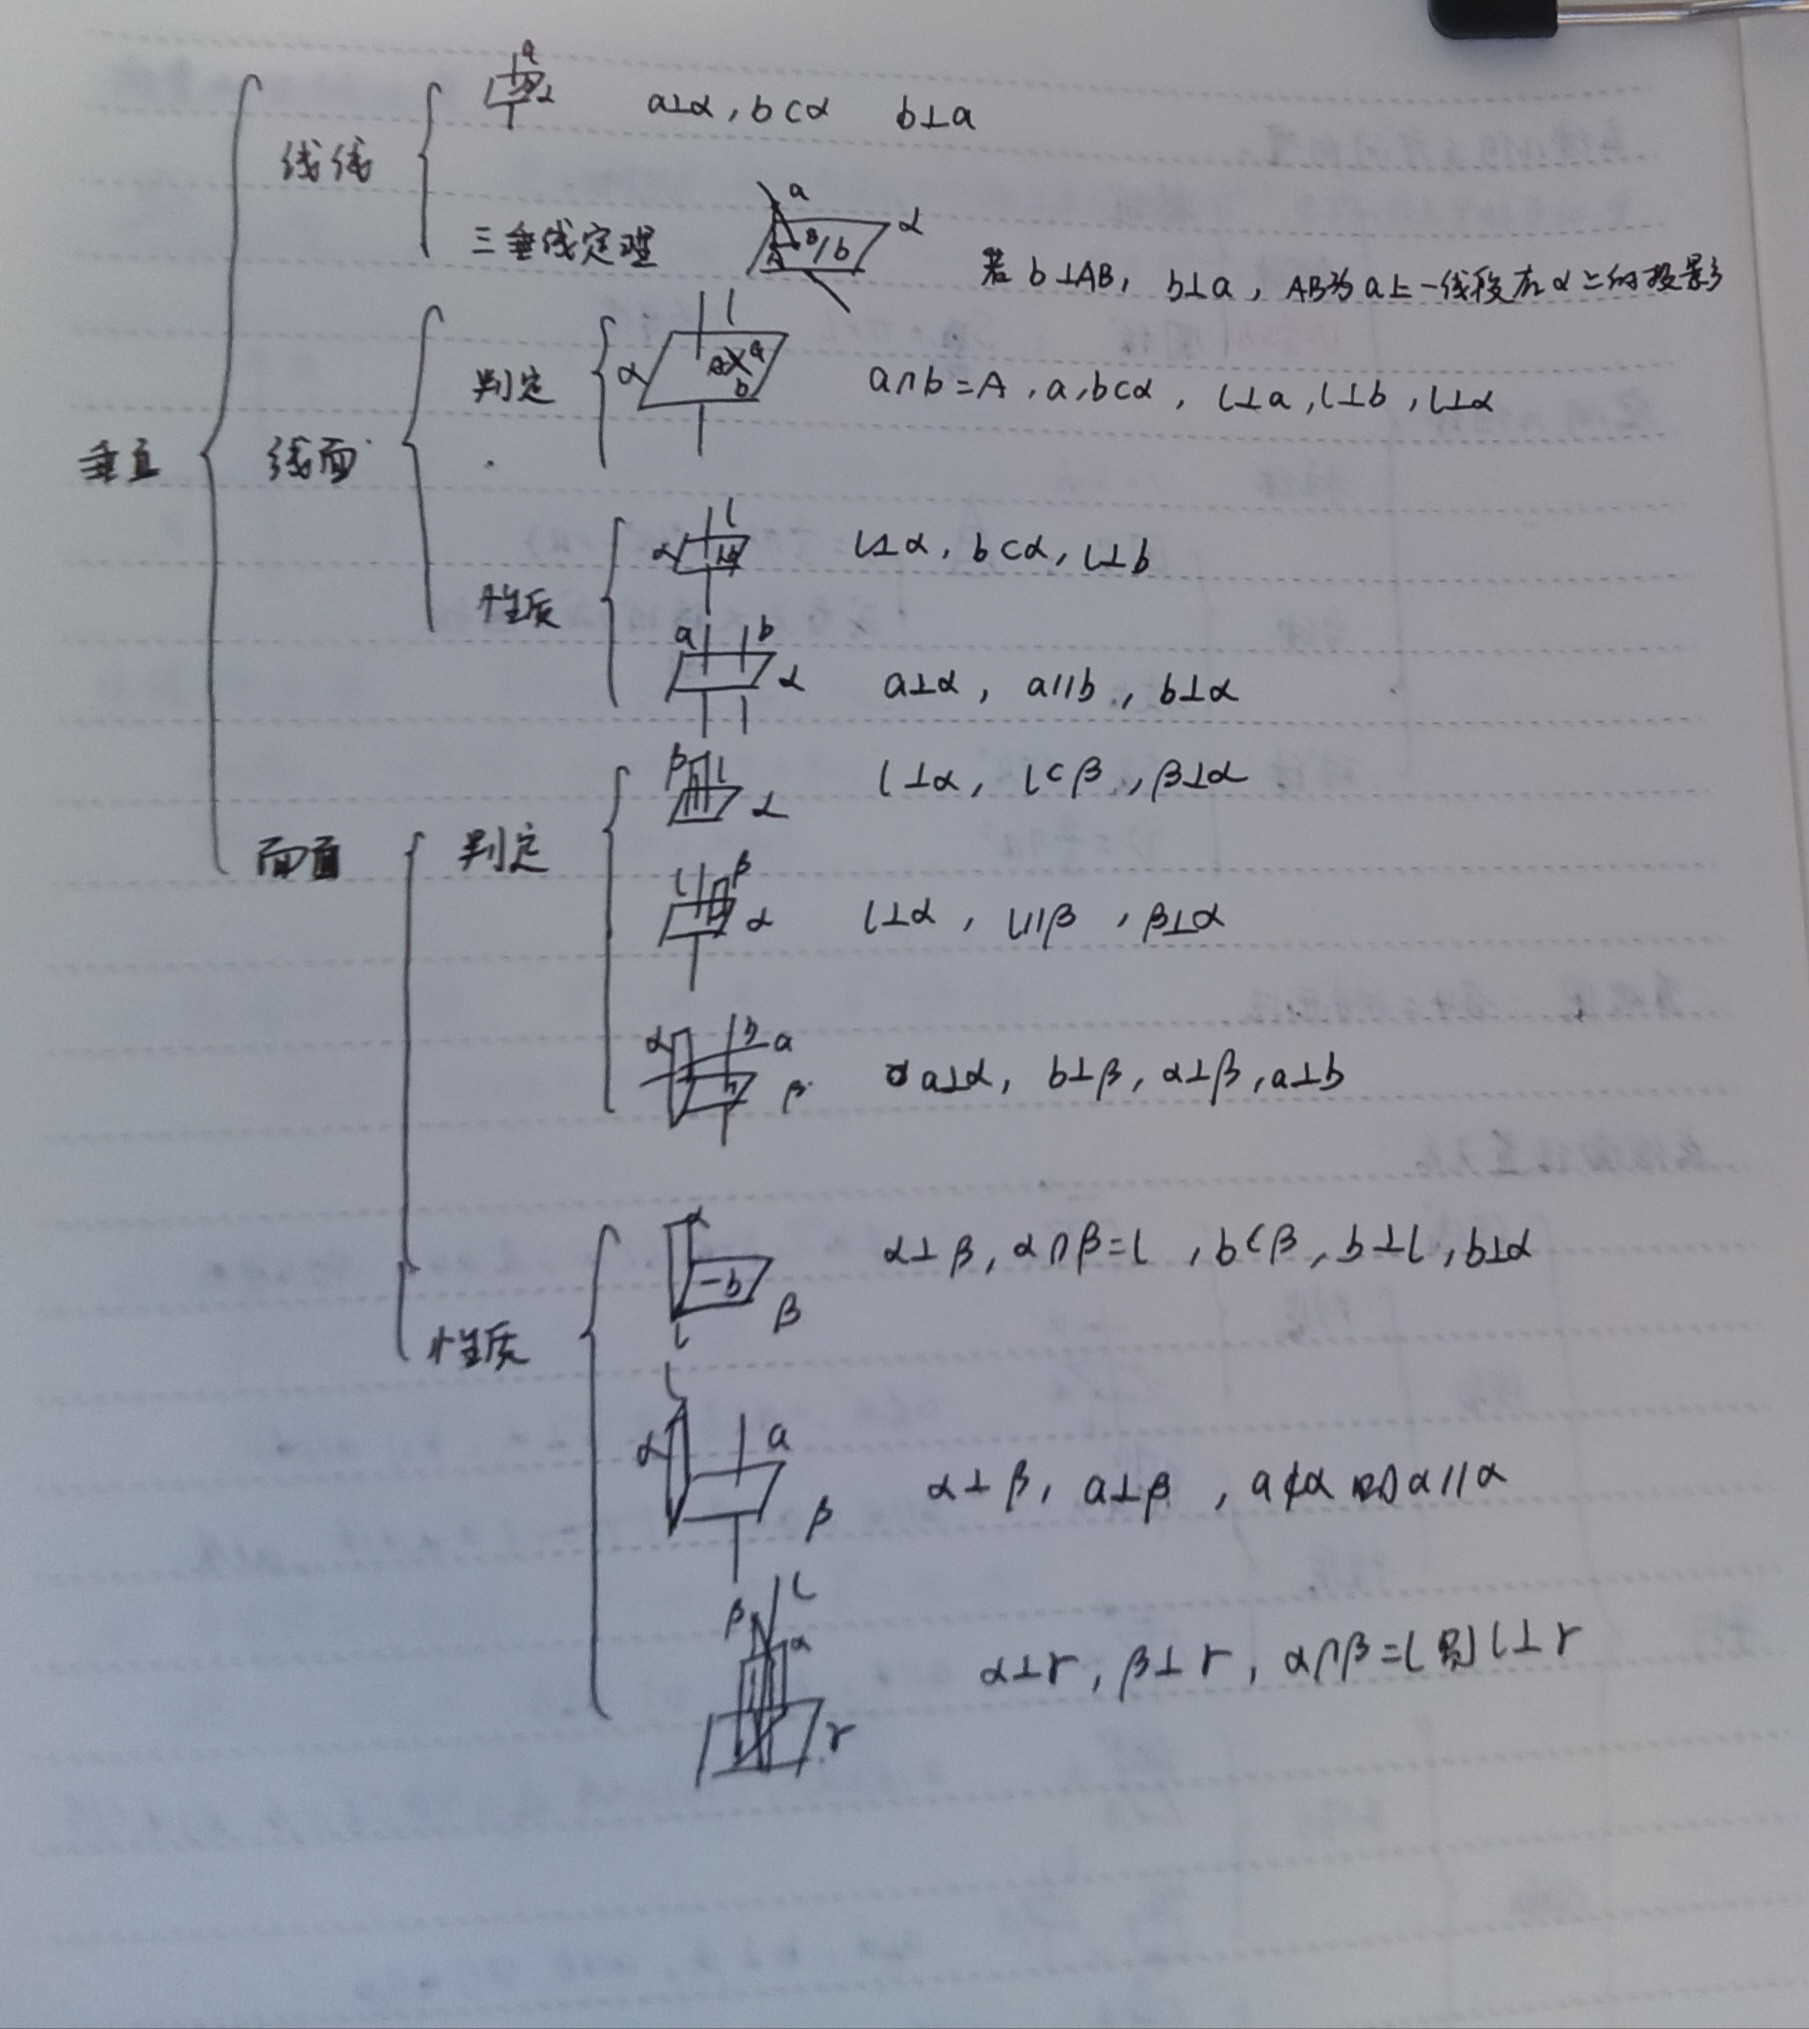 a⊥α,b⊂α b⊥a
线线
三垂线定理 若b⊥AB, b⊥a, AB为a上一线段在α上的投影
判定 a∩b=A,a,b⊂α, l⊥a,l⊥b,l⊥α
垂直 线面
性质 l⊥α,b⊂α,l⊥b
a⊥α, a//b, b⊥α
面面 判定 l⊥α, l⊂β,β⊥α
l⊥α, l//β, β⊥α
a⊥α, b⊥β,α⊥β,a⊥b
性质 α⊥β,α∩β=l,b⊂β,b⊥l,b⊥α
α⊥β, a⊥β, a⊄α 则α//α
α⊥r,β⊥r,α∩β=l则l⊥r